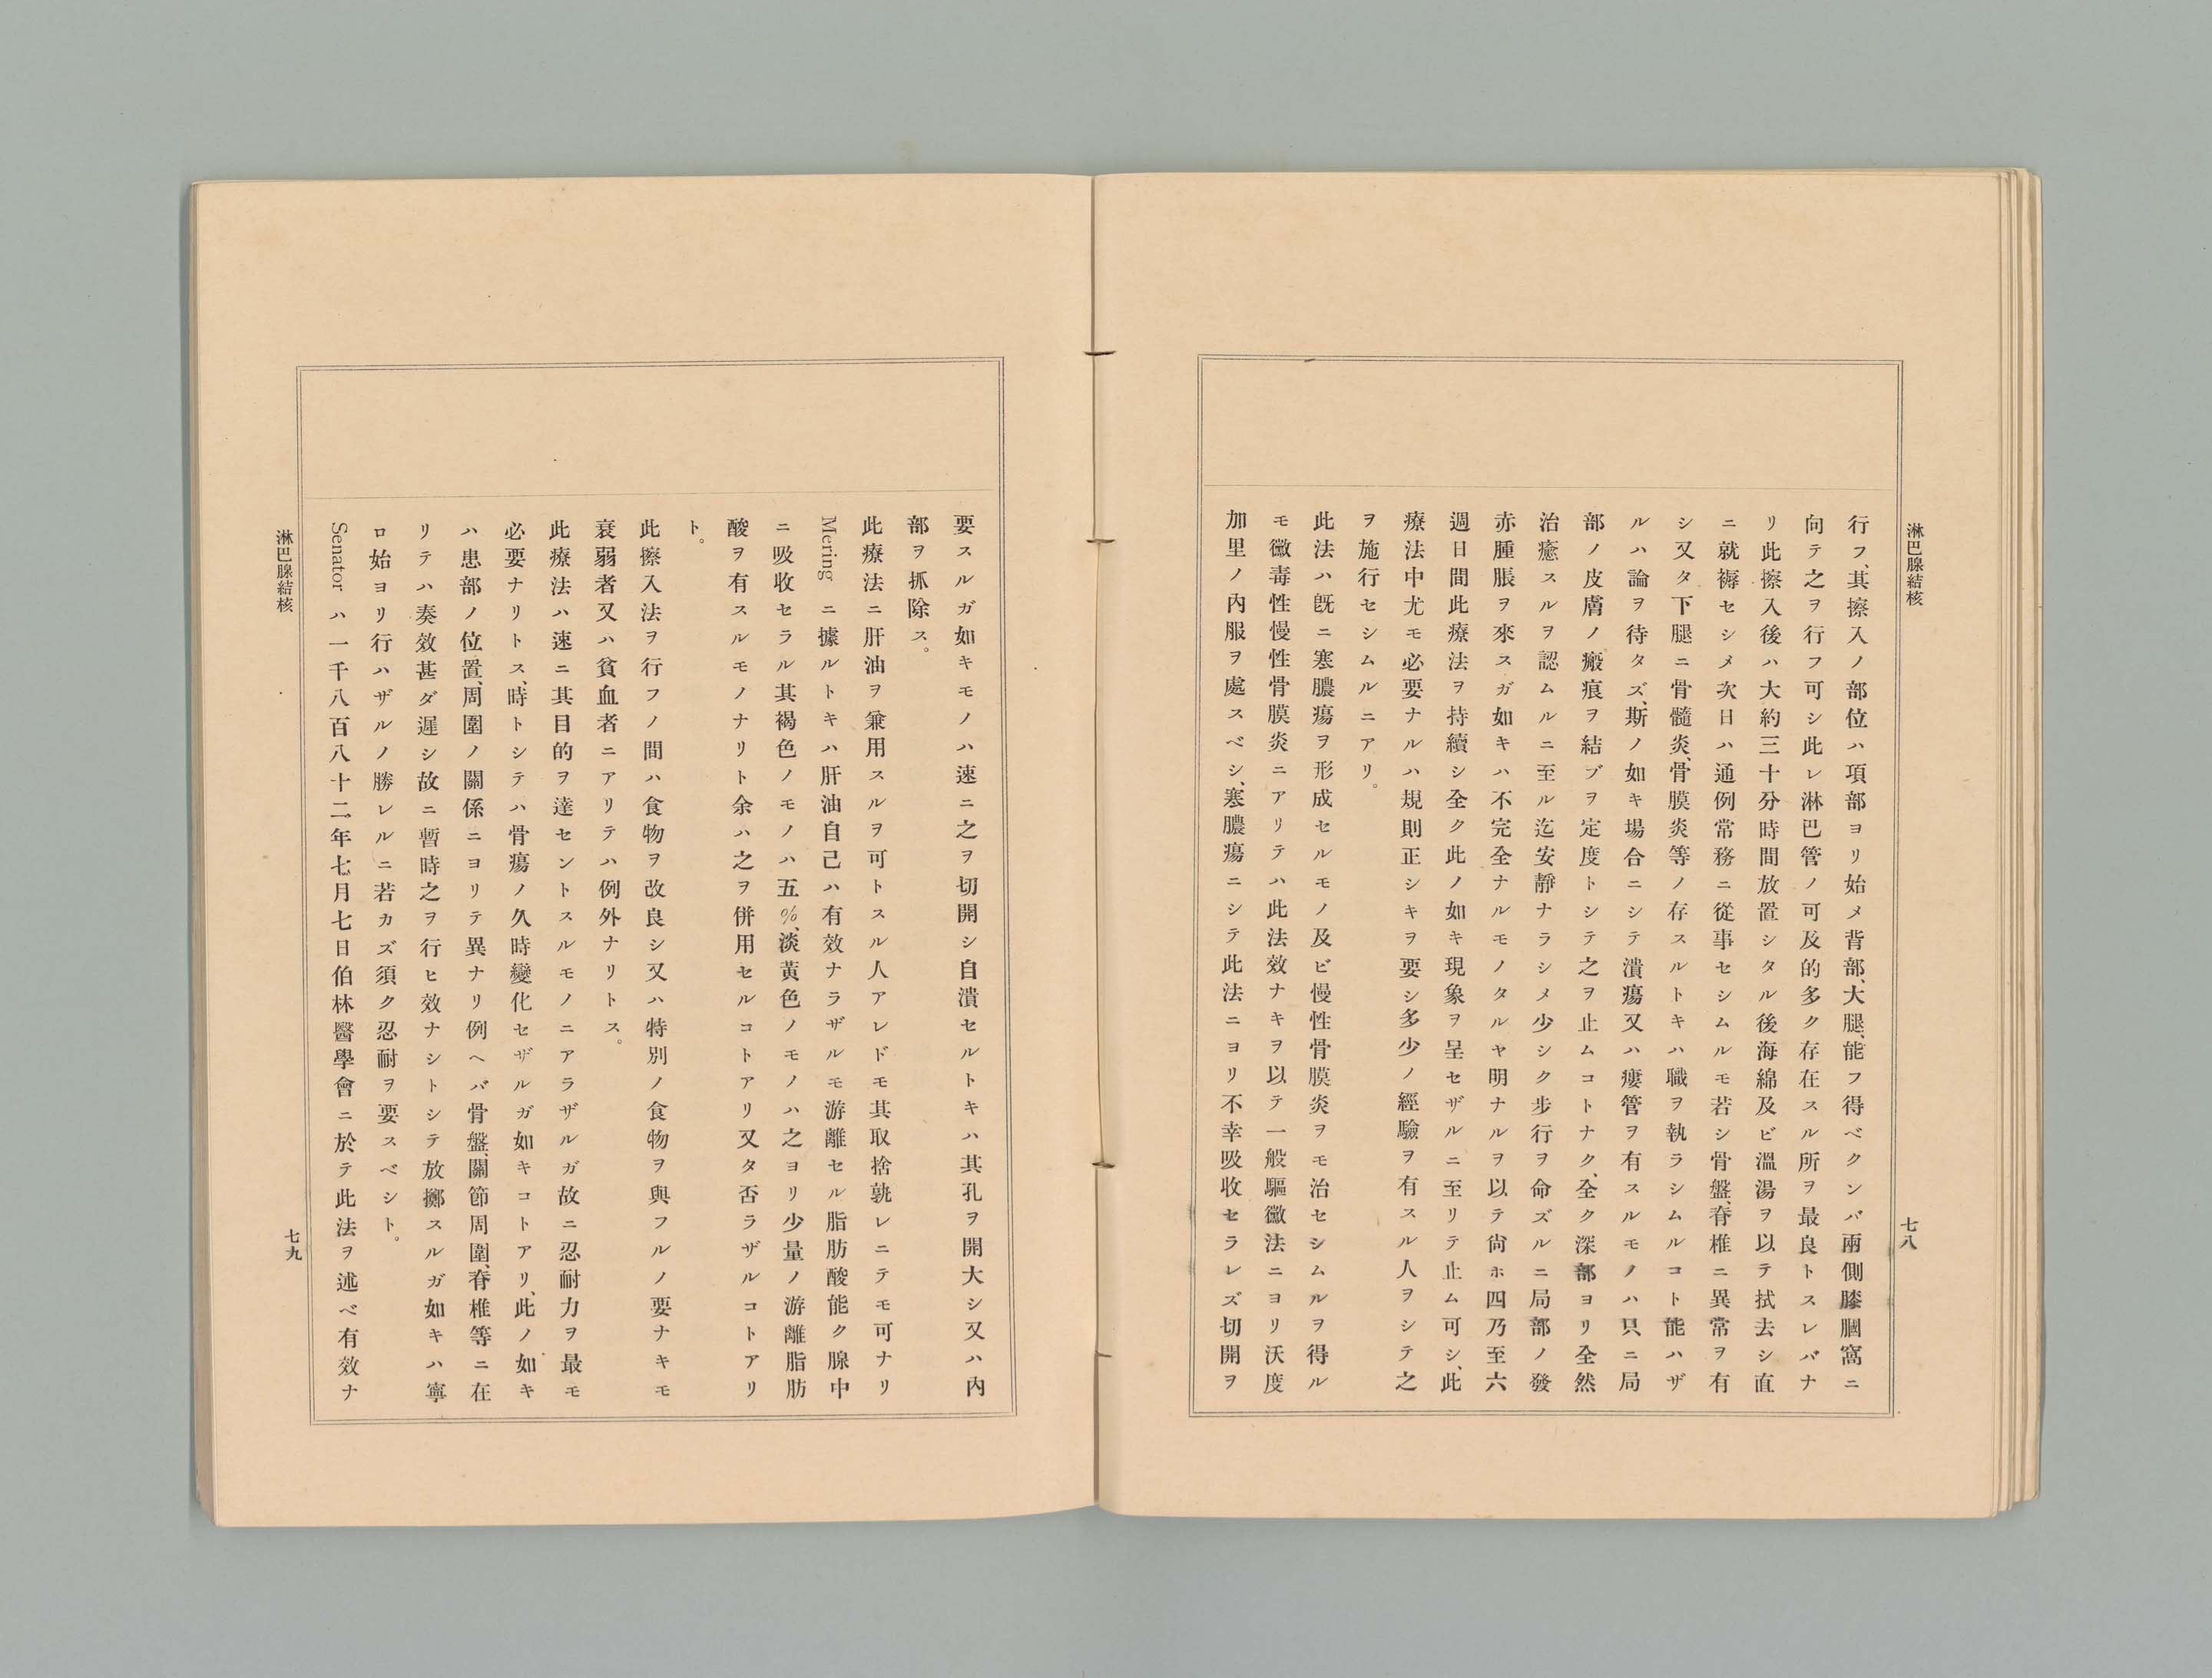 淋巴腺結核
七八
行フ、其擦入ノ部位ハ項部ヨリ始メ背部、大腿、能フ得ベクンバ兩側膝膕窩ニ
向テ之ヲ行フ可シ此レ淋巴管ノ可及的多ク存在スル所ヲ最良トスレバナ
リ此擦入後ハ大約三十分時間放置シタル後海綿及ビ溫湯ヲ以テ拭去シ直
ニ就褥セシメ次日ハ通例常務ニ從事セシムルモ若シ骨盤、脊椎ニ異常ヲ有
シ又タ下腿ニ骨髓炎、骨膜炎等ノ存スルトキハ職ヲ執ラシムルコト能ハザ
ルハ論ヲ待タズ、斯ノ如キ場合ニシテ潰瘍又ハ瘻管ヲ有スルモノハ只ニ局
部ノ皮膚ノ瘢痕ヲ結ブヲ定度トシテ之ヲ止ムコトナク、全ク深部ヨリ全然
治癒スルヲ認ムルニ至ル迄安靜ナラシメ少シク步行ヲ命ズルニ局部ノ發
赤腫脹ヲ來スガ如キハ不完全ナルモノタルヤ明ナルヲ以テ尙ホ四乃至六
週日間此療法ヲ持續シ全ク此ノ如キ現象ヲ呈セザルニ至リテ止ム可シ、此
療法中尤モ必要ナルハ規則正シキヲ要シ多少ノ經驗ヲ有スル人ヲシテ之
ヲ施行セシムルニアリ。
此法ハ旣ニ寒膿瘍ヲ形成セルモノ及ビ慢性骨膜炎ヲモ治セシムルヲ得ル
モ黴毒性慢性骨膜炎ニアリテハ此法效ナキヲ以テ一般驅黴法ニヨリ沃度
加里ノ內服ヲ處スベシ、寒膿瘍ニシテ此法ニヨリ不幸吸收セラレズ切開ヲ
要スルガ如キモノハ速ニ之ヲ切開シ自潰セルトキハ其孔ヲ開大シ又ハ內
部ヲ抓除ス。
此療法ニ肝油ヲ兼用スルヲ可トスル人アレドモ其取捨孰レニテモ可ナリ
Mering ニ據ルトキハ肝油自己ハ有效ナラザルモ游離セル脂肪酸能ク腺中
ニ吸收セラル其褐色ノモノハ五%、淡黃色ノモノハ之ヨリ少量ノ游離脂肪
酸ヲ有スルモノナリト余ハ之ヲ併用セルコトアリ又タ否ラザルコトアリ
ト。
此擦入法ヲ行フノ間ハ食物ヲ改良シ又ハ特別ノ食物ヲ與フルノ要ナキモ
衰弱者又ハ貧血者ニアリテハ例外ナリトス。
此療法ハ速ニ其目的ヲ達セントスルモノニアラザルガ故ニ忍耐力ヲ最モ
必要ナリトス、時トシテハ骨瘍ノ久時變化セザルガ如キコトアリ、此ノ如キ
ハ患部ノ位置、周圍ノ關係ニヨリテ異ナリ例ヘバ骨盤、關節周圍、脊椎等ニ在
リテハ奏效甚ダ遲シ故ニ暫時之ヲ行ヒ效ナシトシテ放擲スルガ如キハ寧
ロ始ヨリ行ハザルノ勝レルニ若カズ須ク忍耐ヲ要スベシト。
Senator ハ一千八百八十二年七月七日伯林醫學會ニ於テ此法ヲ述ベ有效ナ
淋巴腺結核
七九